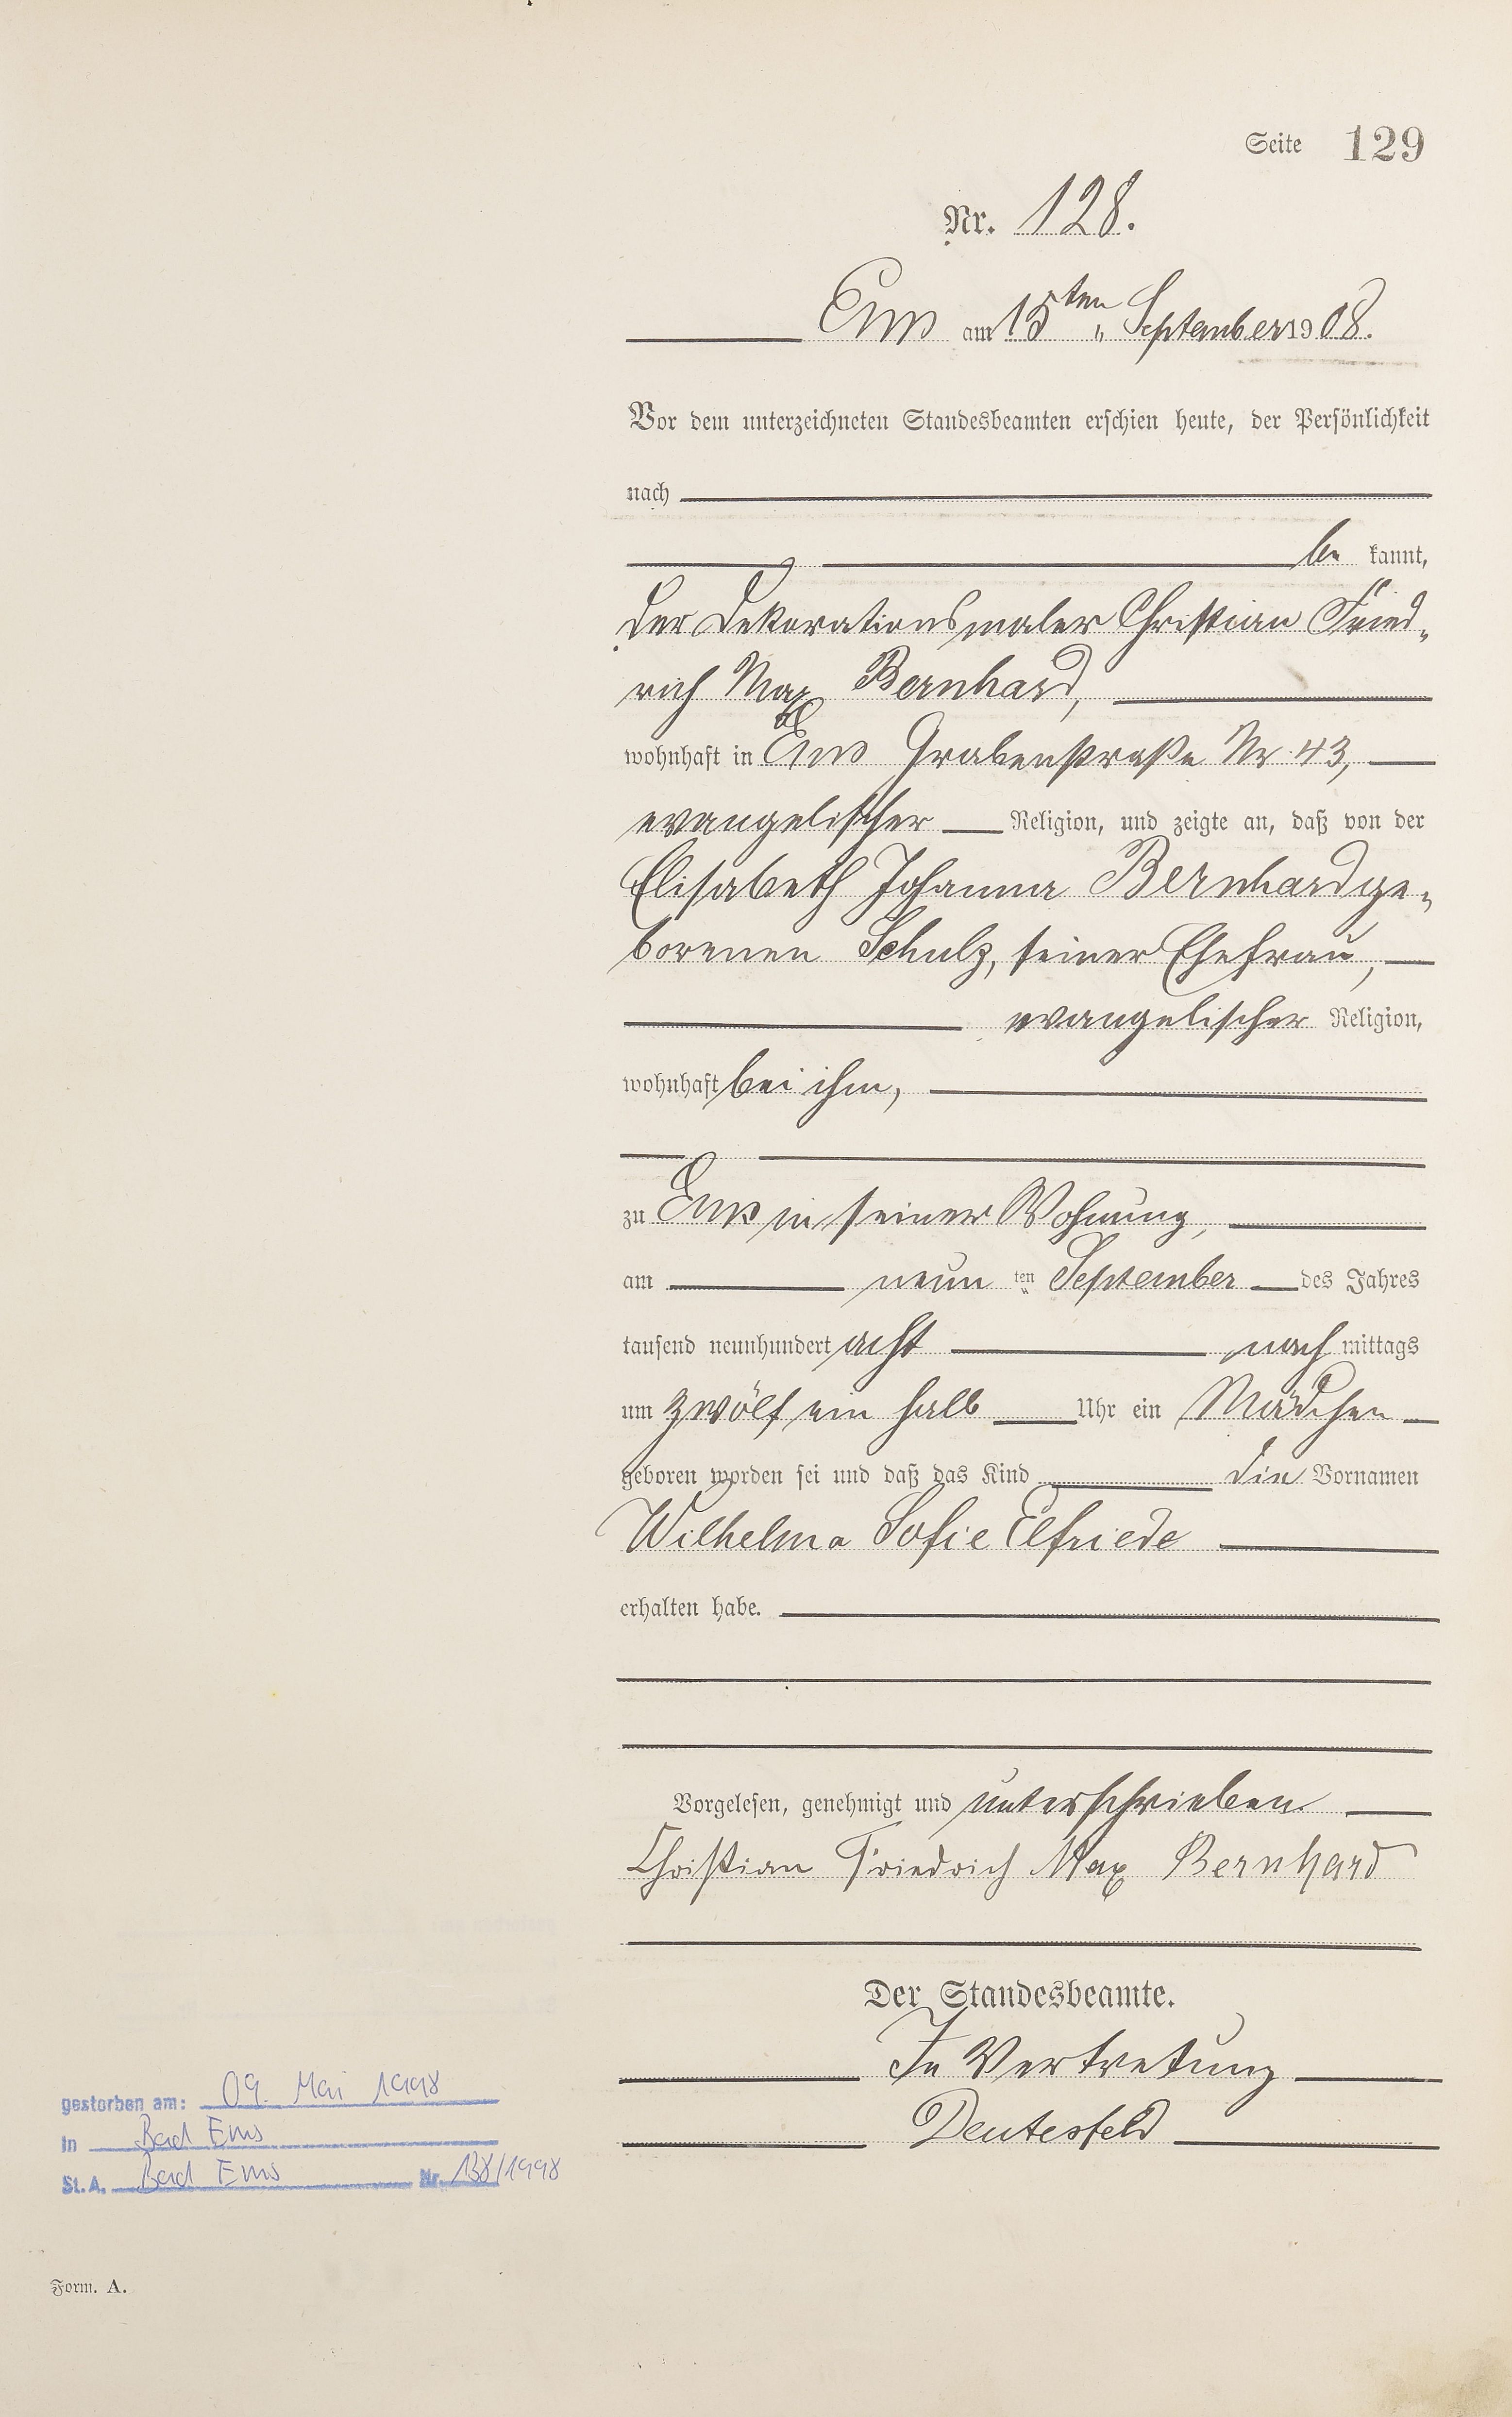 Seite 129
Nr. 128.
Ems am 15ten September 1908.
Vor dem unterzeichneten Standesbeamten erschien heute, der Persönlichkeit
nach
be kannt,
der Dekorationsmaler Christian Fried-
rich Max Bernhard,
wohnhaft in Ems Grabenstraße Nr. 43,
evangelischer Religion, und zeigte an, daß von der
Elisabeth Johanna Bernhard ge-
borenen Schulz, seiner Ehefrau,
evangelischer Religion,
wohnhaft bei ihm,
zu Ems in seiner Wohnung,
am neun ten September des Jahres
tausend neunhundert acht nach mittags
um zwölf ein halb Uhr ein Mädchen
geboren worden sei und daß das Kind die Vornamen
Wilhelma Sofie Elfriede
erhalten habe.
Vorgelesen, genehmigt und unterschrieben.
Christian Friedrich Max Bernhard
Der Standesbeamte.
In Vertretung
Deutesfeld
gestorben am: 09. Mai 1998
in Bad Ems
St. A. Bad Ems Nr. 138/1998
Form. A.